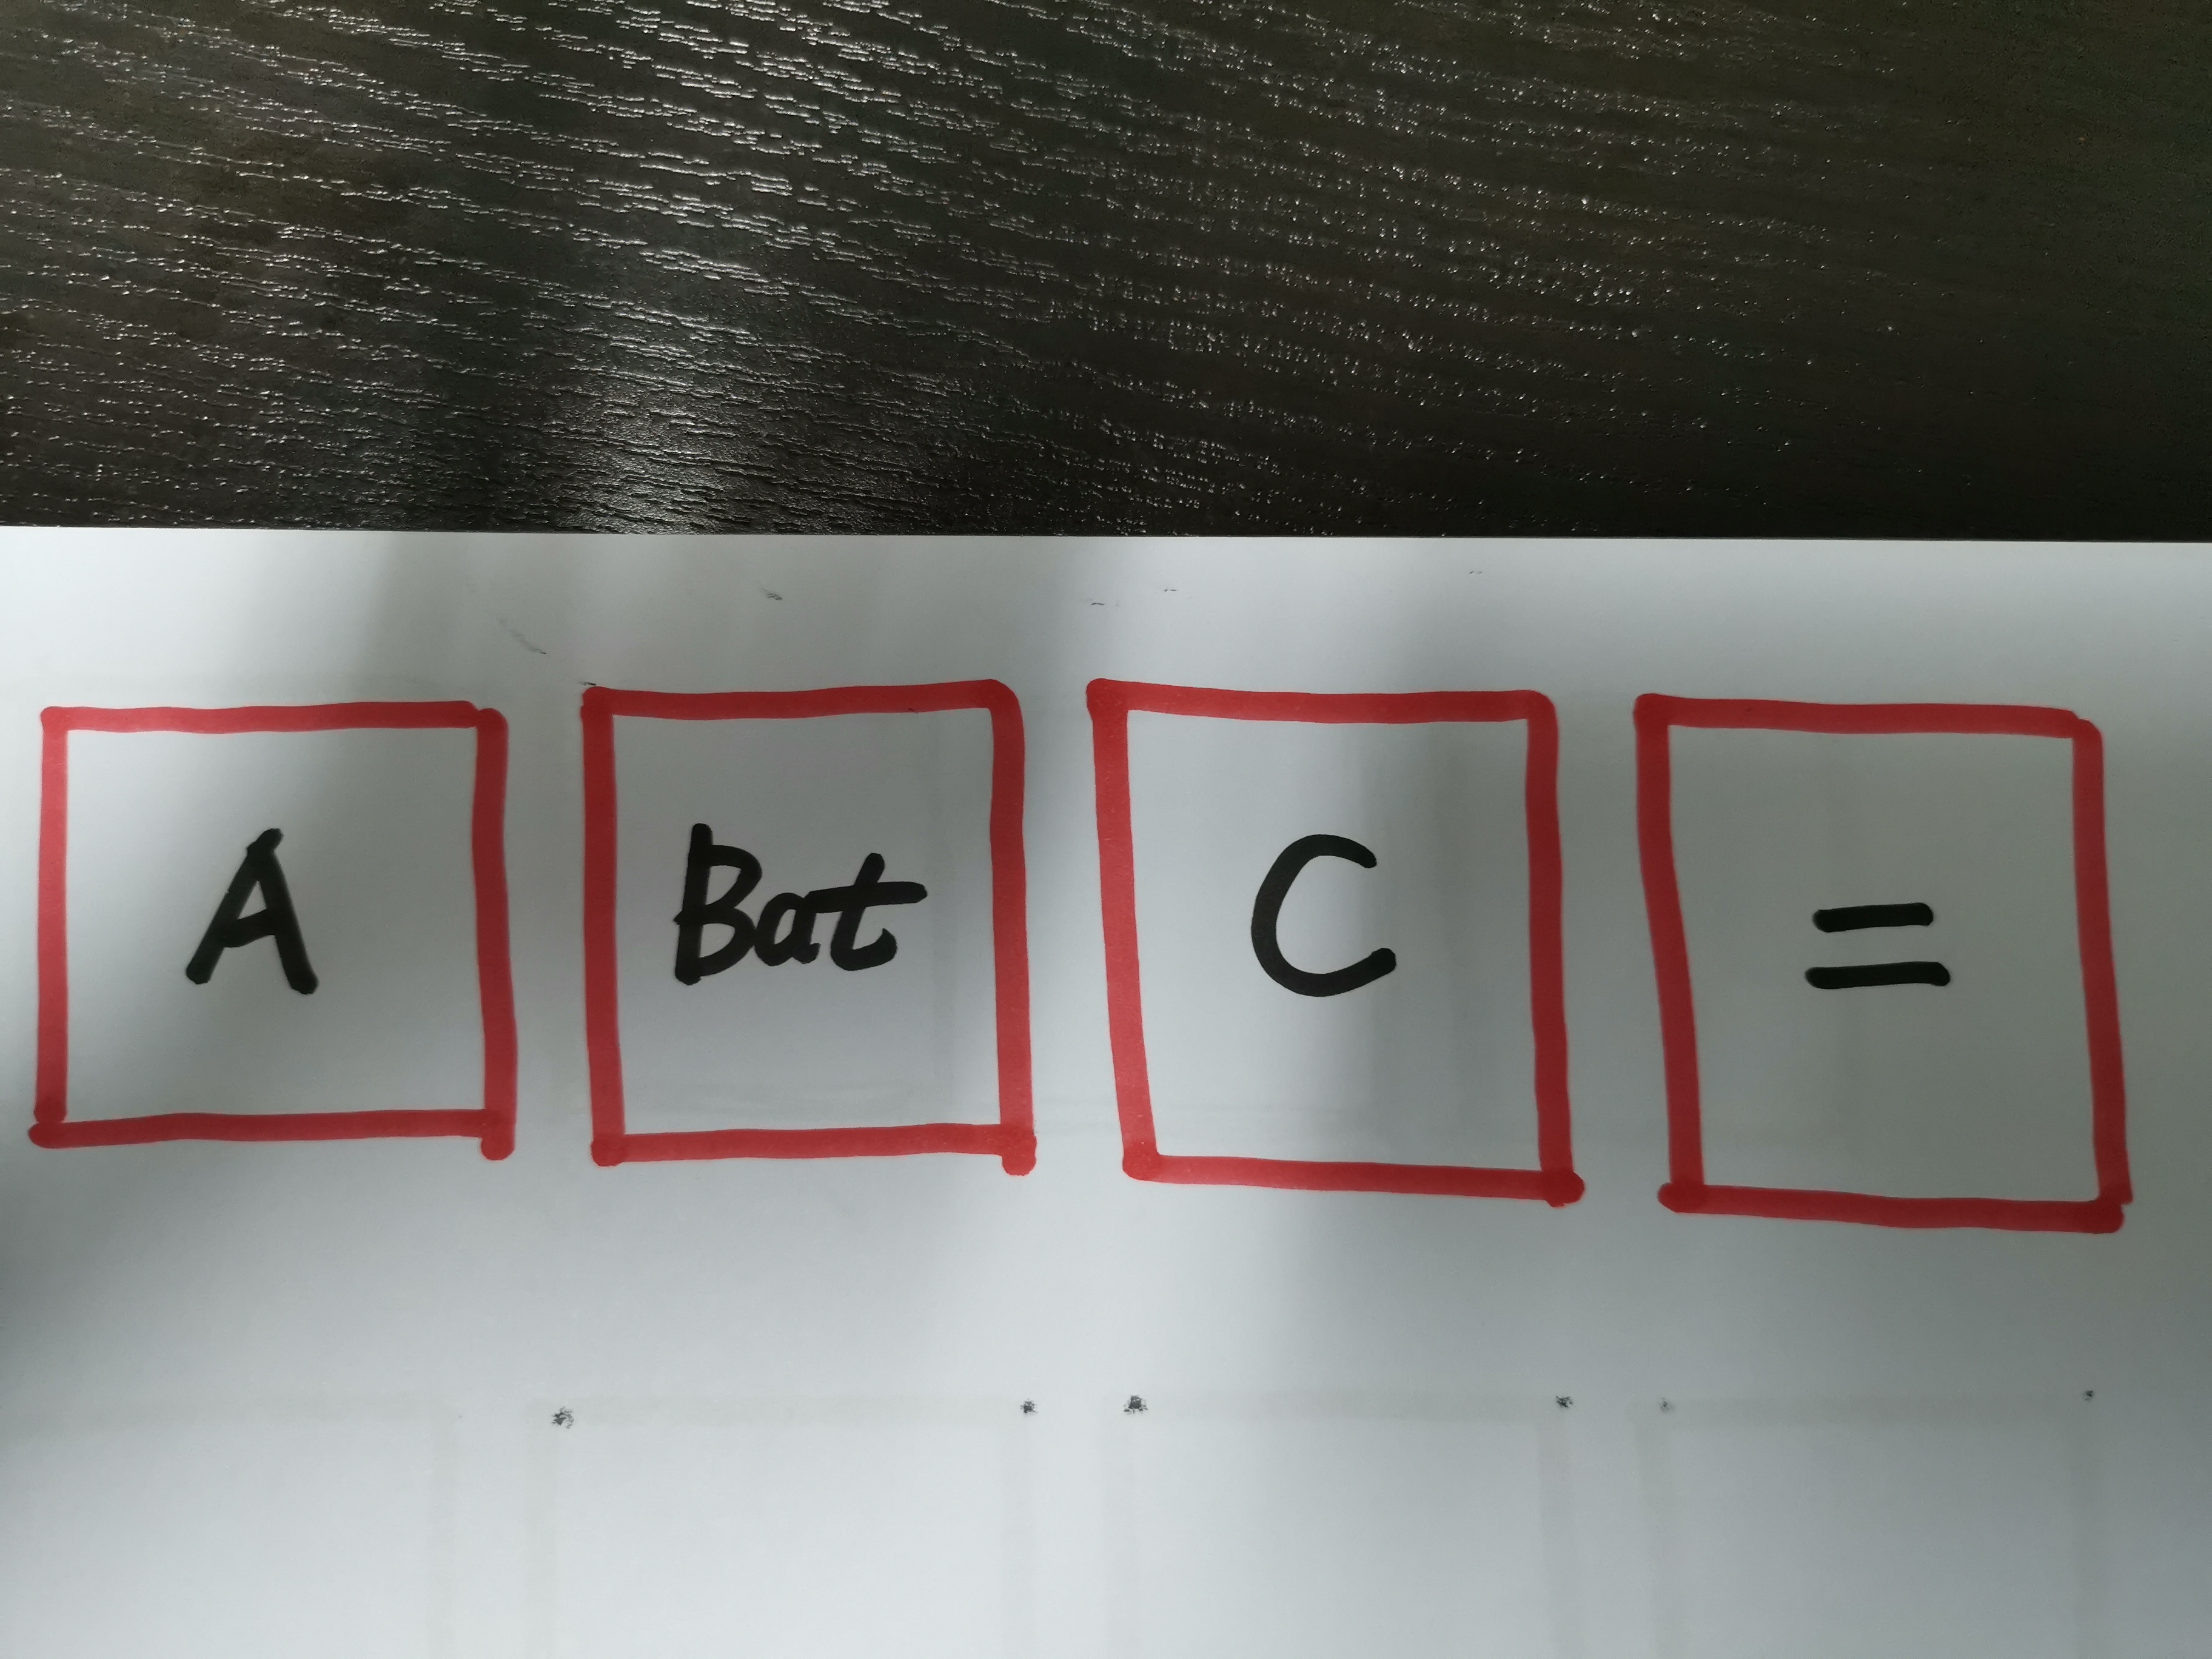 A Bat C =